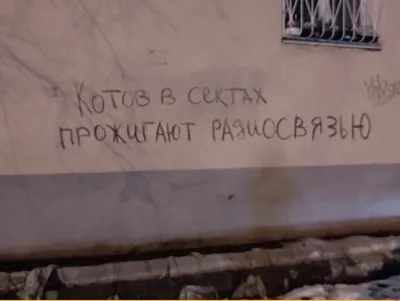 Котов в сектах
прожигают радиосвязью